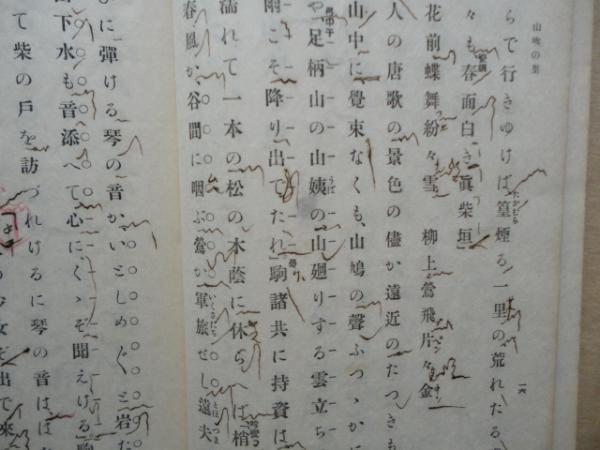 山吹の里
一六
らで行きゆけば篁煙る一里の荒れたる
々も春面白き眞柴垣」
花前蝶舞紛々雪　柳上鶯飛片々金
人の唐歌の景色の儘か遠近のたつきも
山中に覺束なくも、山鳩の聲ふつゝかに
や足柄山の山姨の山廻りする雲立ち
雨こそ降り出でたれ」駒諸共に持資は
濡れて一本の松の木蔭に休らへば梢
春風か、谷間に咽ぶ鶯か軍旅せし遠夫
に彈ける琴の音か、いとしめ〴〵と岩
下水も音添へて心にくゝぞ聞えける」
て柴の戸を訪づれけるに琴の音は